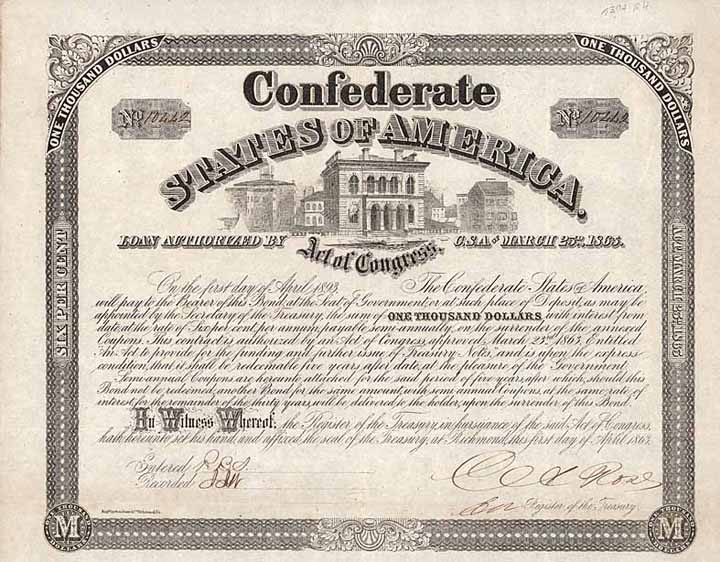 ONE THOUSAND DOLLARS
ONE THOUSAND DOLLARS
Confederate
No 10442
No 10442
STATES OF AMERICA.
LOAN AUTHORIZED BY
Act of Congress,
C.S.A. OF MARCH 23RD, 1863.
SIX PER CENT
On the first day of April 1893, The Confederate States of America,
will pay to the Bearer of this Bond, at the Seat of Government, or at such place of Deposit, as may be
appointed by the Secretary of the Treasury, the sum of ONE THOUSAND DOLLARS, with interest from
date at the rate of Six per cent per annum, payable semi-annually, on the surrender of the annexed
Coupons. This contract is authorized by an Act of Congress, approved, March 23rd 1863, Entitled
"An Act to provide for the funding and further issue of Treasury Notes," and is upon the express
condition, that it shall be redeemable five years after date, at the pleasure of the Government.
Semi-annual Coupons are hereunto attached for the said period of five years, after which, should this
Bond not be redeemed, another Bond for the same amount, with semi annual Coupons, at the same rate of
interest for the remainder of the thirty years, will be delivered to the holder, upon the surrender of this Bond.
In Witness Whereof, the Register of the Treasury, in pursuance of the said Act of Congress,
hath hereunto set his hand, and affixed, the seal of the Treasury, at Richmond, this first day of April 1863.
Entered
Recorded
Rose
Register of the Treasury.
ONE THOUSAND
M
DOLLARS
ONE THOUSAND
M
DOLLARS